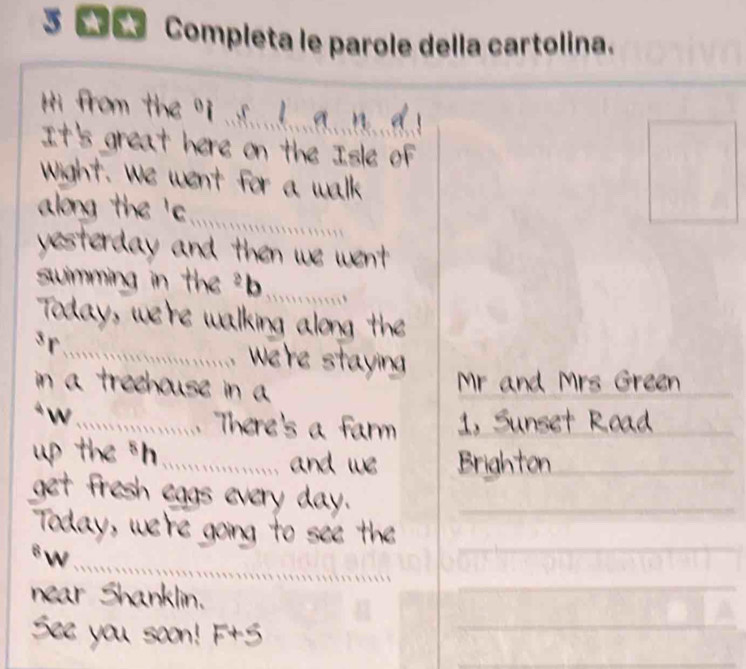 3 Completa le parole della cartolina.
Hi from the ⁰i s l a n d!
It's great here on the Isle of
Wight. We went for a walk
along the ¹c..................
yesterday and then we went
swimming in the ²b............
Today, we're walking along the
³r.................. We're staying
in a treehouse in a
⁴w.............. There's a farm
up the ⁵h.............. and we
get fresh eggs every day.
Today, we're going to see the
⁶w..................................
near Shanklin.
See you soon! F+S
Mr and Mrs Green
1, Sunset Road
Brighton